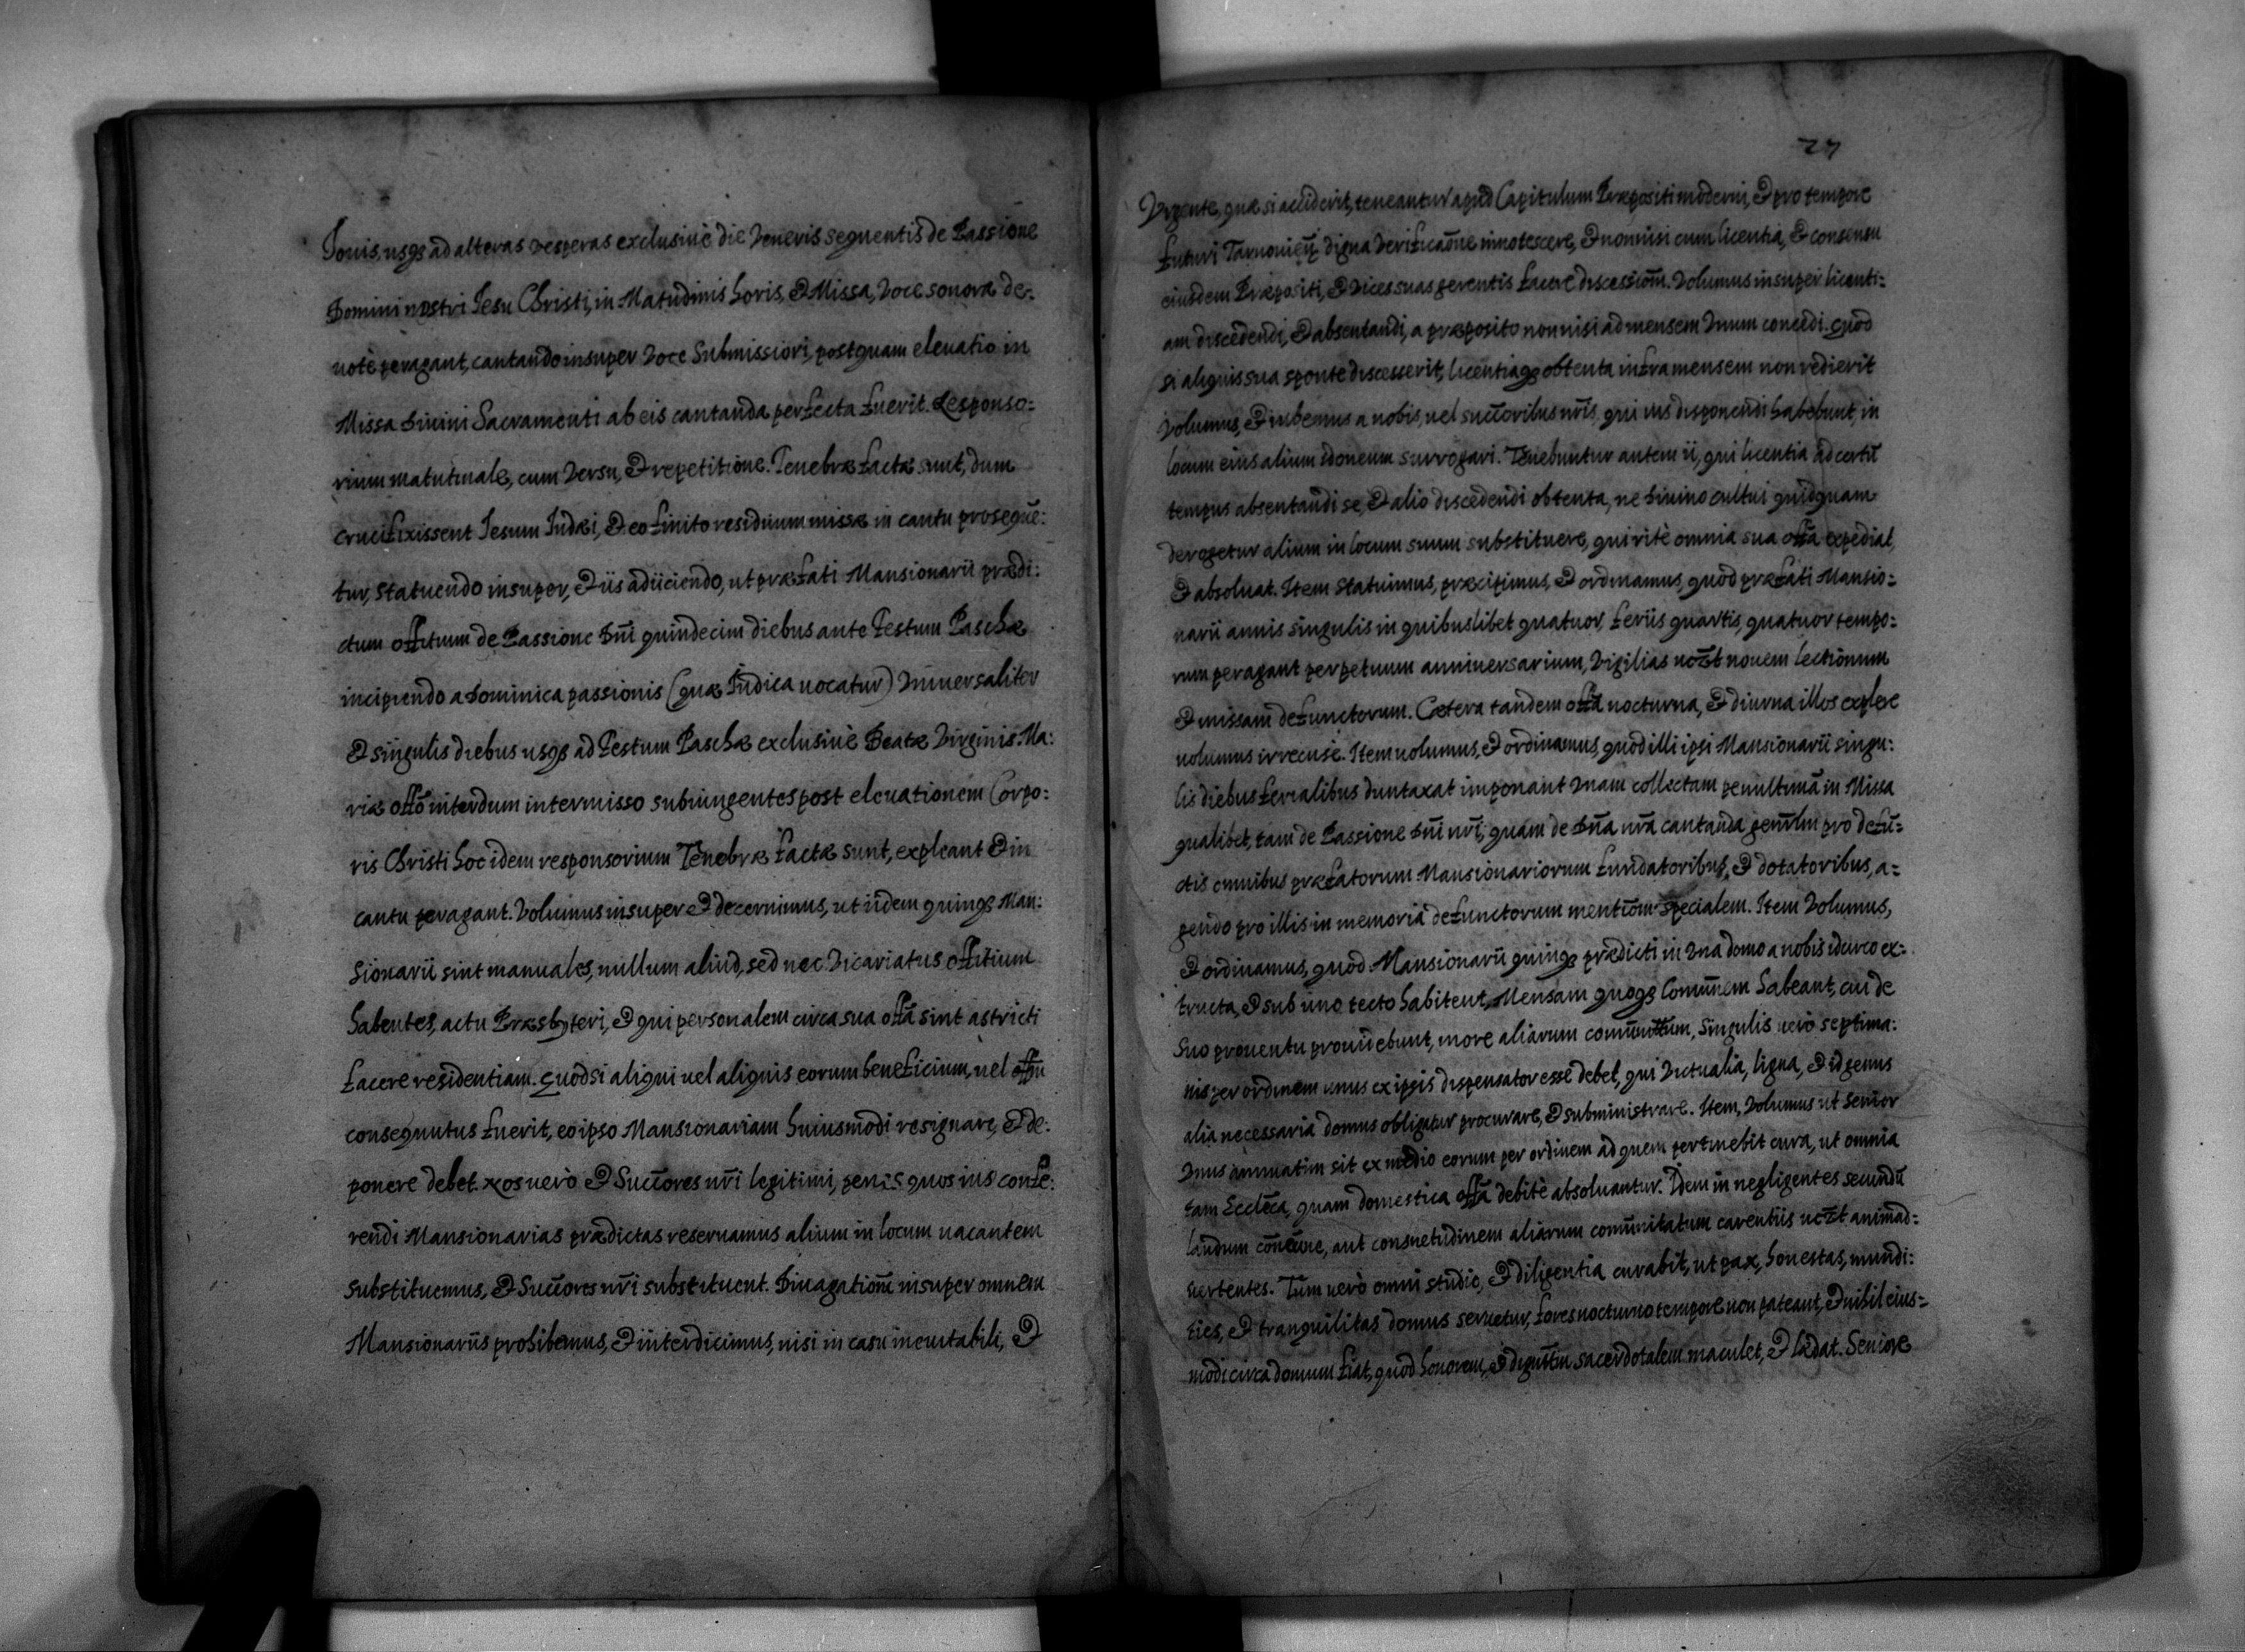 Jouis, usqs ad alteras vesperas exclusiuè die Veneris sequentis de Passione
Domini nostri Jesu Christi, in Matudinis horis, & Missa, Voce sonora de-
uotè peragant, cantando insuper Voce Submissiori, postquam eleuatio in
Missa Diuini Sacramenti ab eis cantanda perfecta fuerit. Responso=
rium matutinale, cum Versu, & repetitione. Tenebræ factæ sunt, dum
crucifixissent Jesum Judæi, & eo finito residuum missæ in cantu prosequē:
tur, Statuendo insuper, & iis adiiciendo, ut præfati Mansionarii prædi:
ctum offitium de Passione Dn̄i quindecim diebus ante Festum Paschæ
incipiendo a Dominica passionis (quæ Judica uocatur) Vniuersaliter
& singulis diebus usqs ad Festum Paschæ exclusiuè Beatæ Virginis Ma:
riæ offo interdum intermisso subiungentes post eleuationem Corpo:
ris Christi hoc idem responsorium Tenebræ factæ sunt, expleant & in
cantu peragant. Volumus insuper & decernimus, ut iidem quinqs Man:
sionarii sint manuales, nullum aliud, sed nec Vicariatus offitium
habentes, actu Præsbyteri, & qui personalem circa sua offa sint astricti
facere residentiam. Quodsi aliqui uel aliquis eorum beneficium, uel offm
consequutus fuerit, eo ipso Mansionariam huiusmodi resignare, & de:
ponere debet. Nos uerò & Succores nr̄i legitimi, penis quos ius confe:
rendi Mansionarias prædictas reseruamus alium in locum uacantem
substituemus, & Succores nr̄i substituent. Diuagationē insuper omnem
Mansionariis prohibemus, & interdicimus, nisi in casu ineuitabili, &
27
Vrgente, quæ si acciderit, teneantur apud Capitulum Præpositi moderni, & pro tempore
futuri Tarnouieñ digna Verificaōne innotescere, & nonnisi cum licentia, & consensu
eiusdem Præpositi, & Vices suas gerentis facere discessionē. Volumus insuper licenti=
am discedendi, & absentandi, a præposito nonnisi ad mensem Vnum concedi. Quod
si aliquis sua sponte discesserit, licentiaqs obtenta infra mensem non redierit
Volumus, & iubemus a nobis, uel succoribus nr̄is, qui ius disponendi habebunt, in
locum eius alium idoneum surrogari. Tenebuntur autem ii, qui licentia ad certū
tempus absentandi se, & alio discedendi obtenta, ne Diuino cultui quidquam
derogetur alium in locum suum substituere, qui ritè omnia sua offa expediat,
& absoluat. Item Statuimus, præcipimus, & ordinamus, quod præfati Mansio=
narii annis singulis in quibuslibet quatuor feriis quartis, quatuor tempo:
rum peragant perpetuum anniuersarium, Vigilias uczt nouem lectionum
& missam defunctorum. Cætera tandem offa nocturna, & diurna illos explere
uolumus irrecuse. Item uolumus, & ordinamus, quod illi ipsi Mansionarii singu:
lis diebus ferialibus duntaxat imponant Vnam collectam penultimā in Missa
qualibet, tam de Passione Dn̄i nr̄i, quam de Dn̄a nr̄a cantanda gen̄rlm pro defū=
ctis omnibus præfatorum Mansionariorum fundatoribus, & dotatoribus, a=
gendo pro illis in memoria defunctorum mentionē specialem. Item Volumus,
& ordinamus, quod Mansionarii quinqs prædicti in Vna domo a nobis idcirco ex=
tructa, & sub uno tecto habitent, Mensam quoqs Comūnem habeant, cui de
Suo prouentu prouidebunt, more aliarum comūnittum, Singulis uerò septima:
nis per ordinem unus ex ipsis dispensator esse debet, qui Victualia, ligna, & id genus
alia necessaria domus obligatur procurare, & subministrare. Item, Volumus ut Senior
Vnus annuatim sit ex medio eorum per ordinem ad quem pertinebit cura, ut omnia
tam Ecclēca, quam domestica offa debitè absoluantur. Idem in negligentes secundū
laudum aut consuetudinem aliarum comūnitatum carentiis uczt animad=
uertentes. Tum uerò omni studio, & diligentia curabit, ut pax, honestas, mundi:
ties, & tranquilitas domus seruetur, fores nocturno tempore non pateant, & nihil eius=
modi circa domum fiat, quod honorem, & dignitm sacerdotalem maculet, & lædat. Seniore